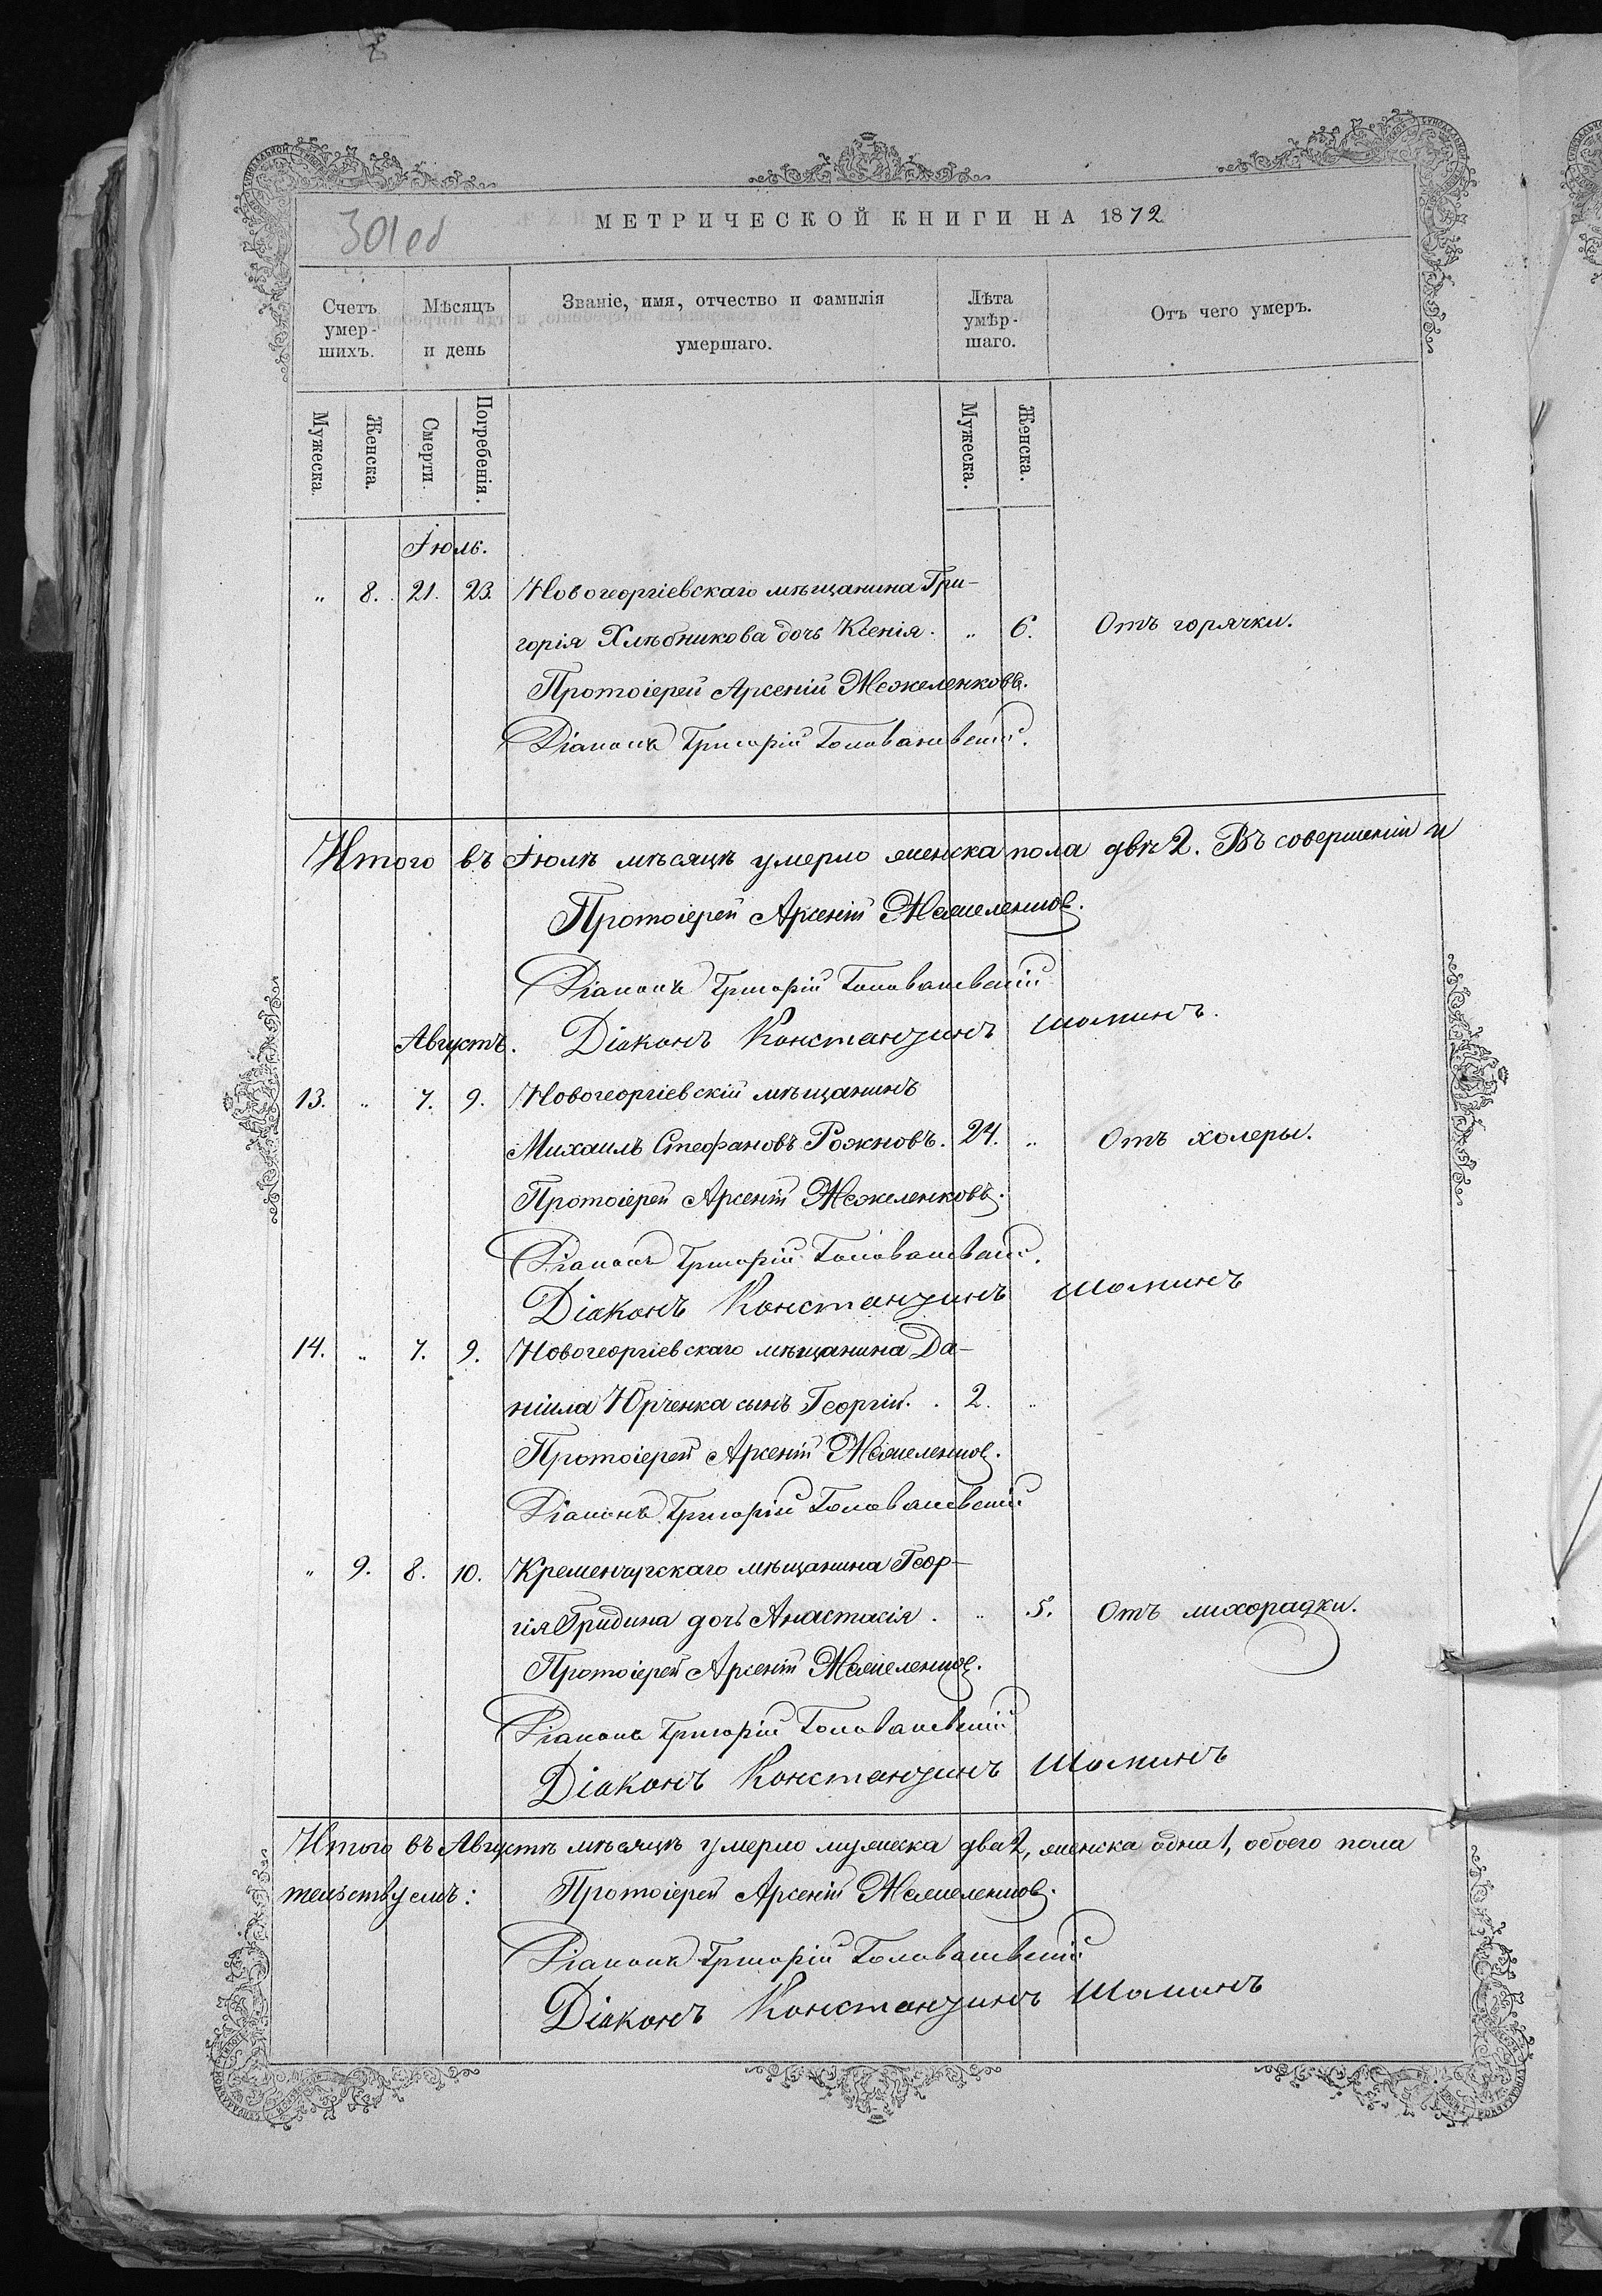 301об
МЕТРИЧЕСКОЙ КНИГИ НА 1872
Счетъ умер-шихъ.
Мѣсяцъ и день
Званіе, имя, отчество и фамилія умершаго.
Лѣта умѣр-шаго.
Отъ чего умеръ.
Мужеска.
Женска.
Смерти.
Погребенія.
Мужеска.
Женска.
Іюль.
„ 8. 21. 23. Новогеоргіевскаго мѣщанина Гри-
горія Хлѣбникова дочь Ксенія. „ 6. Отъ горячки.
Протоіерей Арсеній Межеленковъ.
Діаконъ Григорій
Итого въ Іюлѣ мѣсяцѣ умерло женска пола двѣ 2. Въ совершеніи и
Протоіерей Арсеній
Діаконъ Григорій
Августъ. Діаконъ Константинъ Шоминъ.
13. „ 7. 9. Новогеоргіевскій мѣщанинъ
Михаилъ Стефановъ Рожновъ. 24. „ Отъ холеры.
Протоіерей Арсеній Межеленковъ.
Діаконъ Григорій
Діаконъ Константинъ Шоминъ
14. „ 7. 9. Новогеоргіевскаго мѣщанина Да-
ніила Юрченка сынъ Георгій. 2. „
Протоіерей Арсеній
Діаконъ Григорій
„ 9. 8. 10. Кременчугскаго мѣщанина Геор-
гія Гридина дочь Анастасія. „ 5. Отъ лихорадки.
Протоіерей Арсеній
Діаконъ Григорій
Діаконъ Константинъ Шоминъ
Итого въ Августѣ мѣсяцѣ умерло мужеска два 2, женска одна 1, обоего пола
тельствуемъ: Протоіерей Арсеній
Діаконъ Григорій
Діаконъ Константинъ Шоминъ